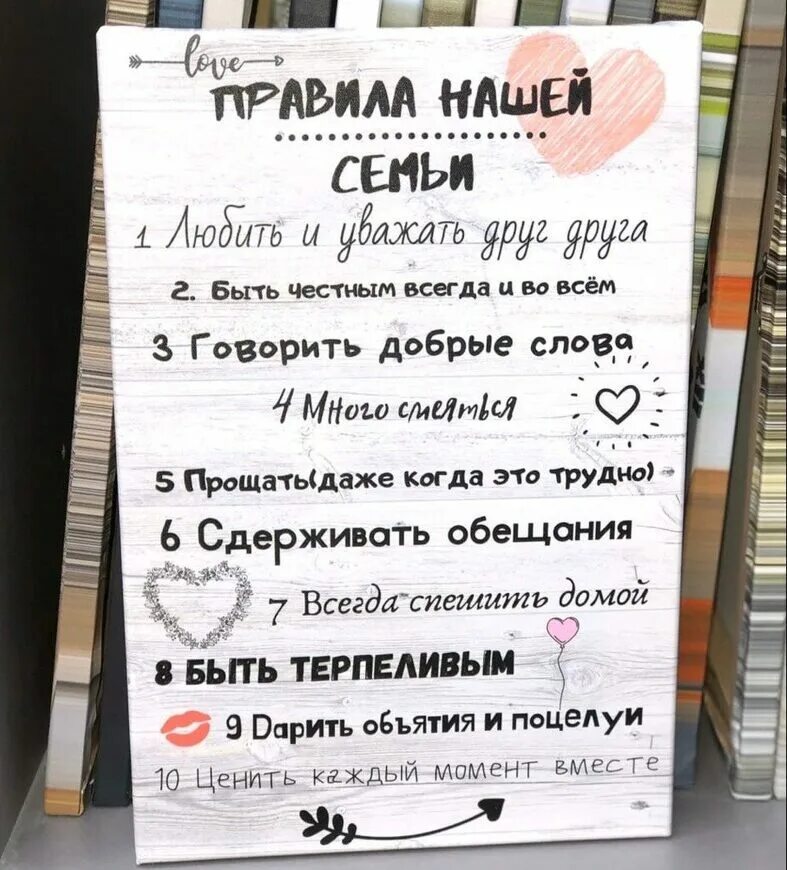 love
ПРАВИЛА НАШЕЙ
СЕМЬИ
1 Любить и уважать друг друга
2. Быть честным всегда и во всём
3 Говорить добрые слова
4 Много смеяться
5 Прощать(даже когда это трудно)
6 Сдерживать обещания
7 Всегда спешить домой
8 БЫТЬ ТЕРПЕЛИВЫМ
9 Dарить объятия и поцелуи
10 Ценить каждый момент вместе